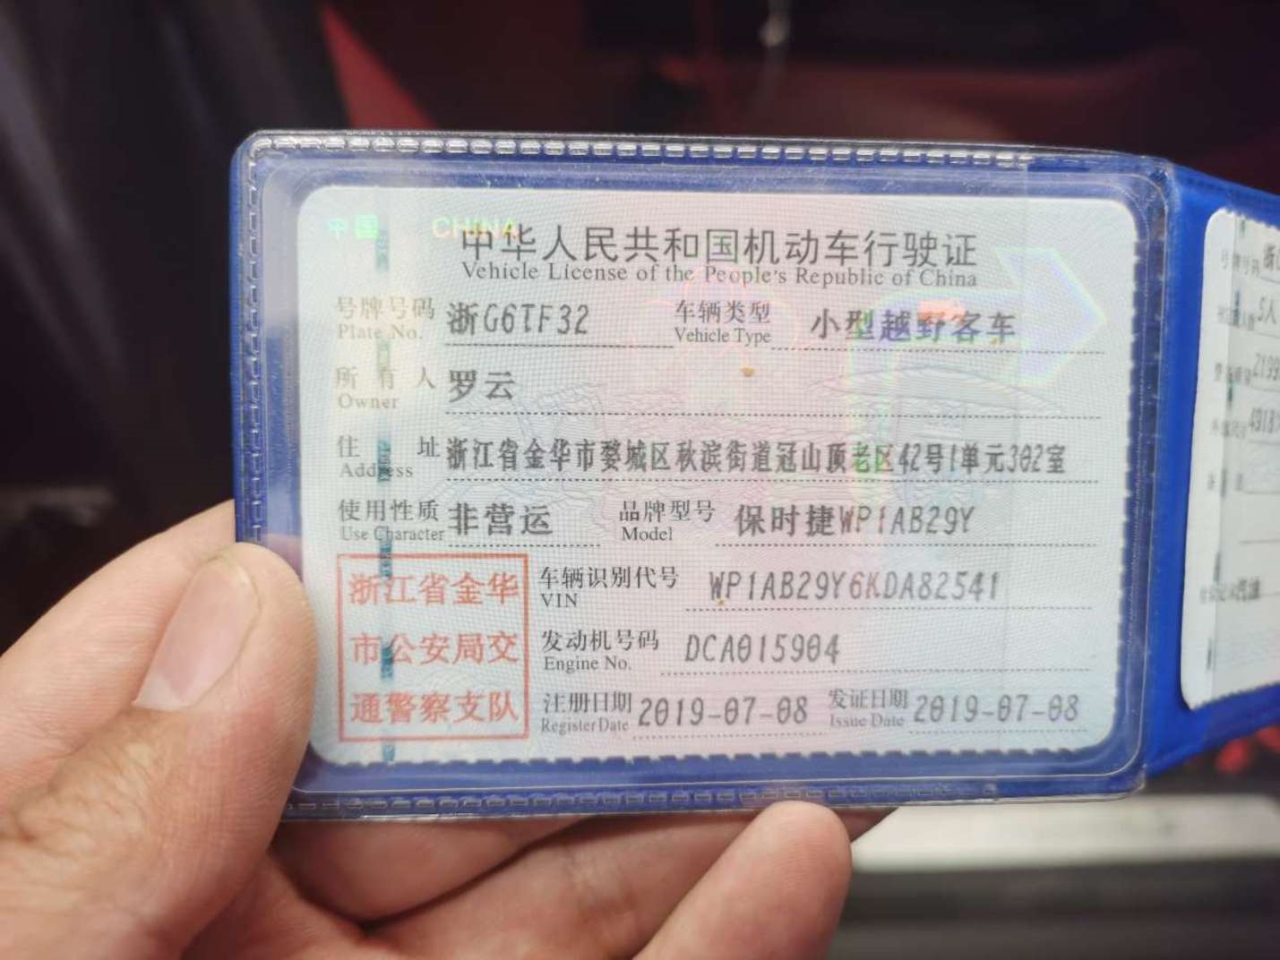 中国 CHINA
中华人民共和国机动车行驶证
Vehicle License of the People's Republic of China
号牌号码 浙G6TF32 车辆类型 小型越野客车
Plate No. Vehicle Type
所有人 罗云
Owner
住址 浙江省金华市婺城区秋滨街道冠山顶老区42号1单元302室
Address
使用性质 非营运 品牌型号 保时捷WP1AB29Y
Use Character Model
浙江省金华
市公安局交
通警察支队
车辆识别代号 WP1AB29Y6KDA82541
VIN
发动机号码 DCA015904
Engine No.
注册日期 2019-07-08 发证日期 2019-07-08
Register Date Issue Date
5人